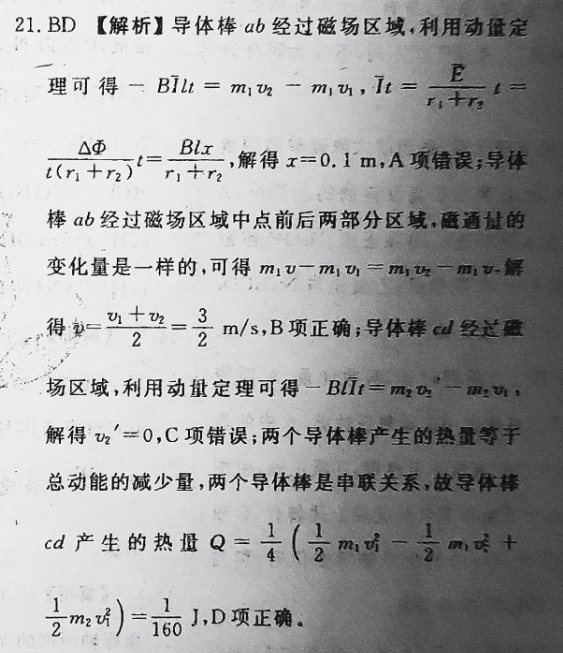 21. BD 【解析】导体棒 ab 经过磁场区域,利用动量定
理可得 − BĪlt = m₁v₂ − m₁v₁, Īt = Ē/(r₁+r₂) t =
ΔΦ/(t(r₁+r₂)) t = Blx/(r₁+r₂), 解得 x=0.1 m, A 项错误;导体
棒 ab 经过磁场区域中点前后两部分区域,磁通量的
变化量是一样的,可得 m₁v−m₁v₁=m₁v₂−m₁v,解
得 v=(v₁+v₂)/2=3/2 m/s,B 项正确;导体棒 cd 经过磁
场区域,利用动量定理可得−BlĪt=m₂v₂′−m₂v₁,
解得 v₂′=0,C 项错误;两个导体棒产生的热量等于
总动能的减少量,两个导体棒是串联关系,故导体棒
cd 产生的热量 Q = 1/4 (1/2 m₁v₁² − 1/2 m₁v₂² +
1/2 m₂v₁²) = 1/160 J,D 项正确。